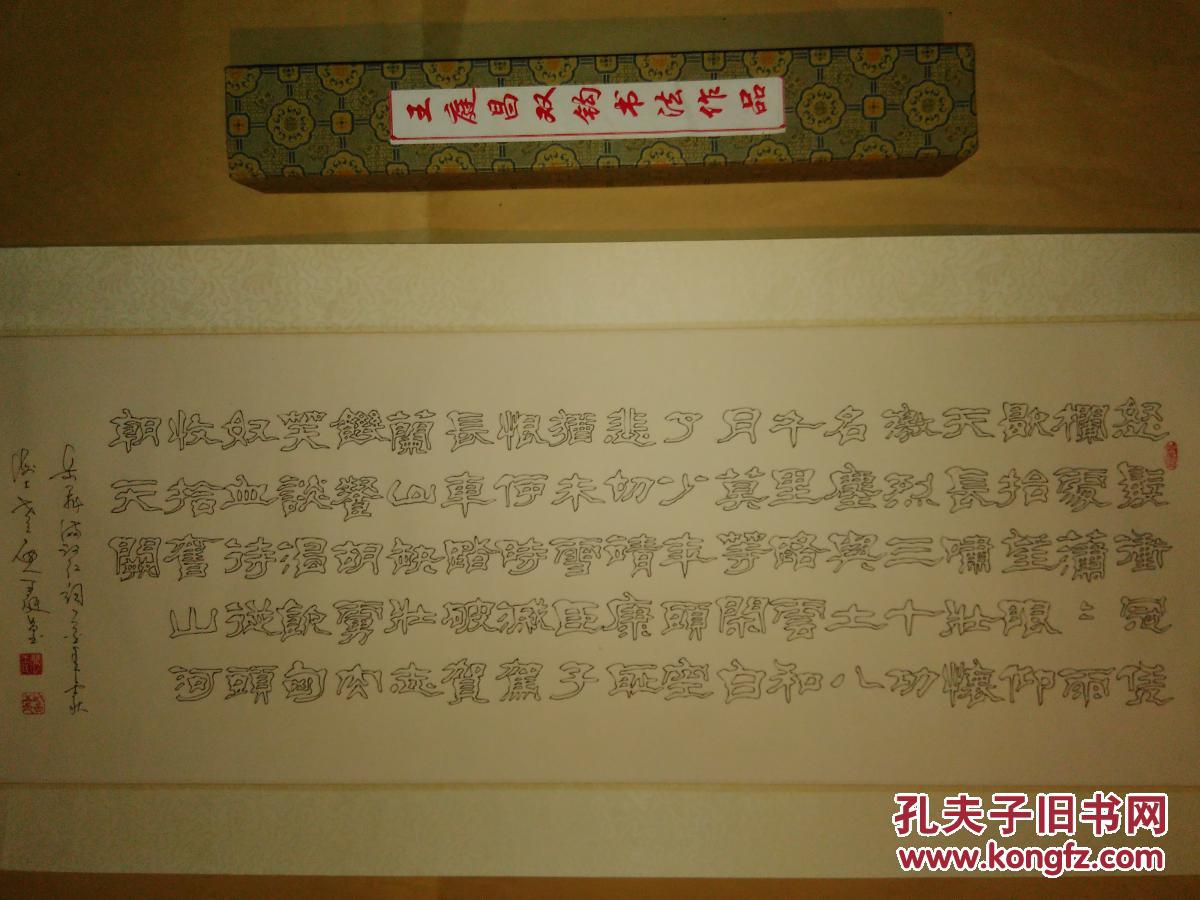 王庭昌双钩书法作品
怒髮衝冠凭
欄處瀟〻雨
歇抬望眼仰
天長嘯壯懷
激烈三十功
名塵與土八
千里路雲和
月莫等閒白
了少年頭空
悲切靖康恥
猶未雪臣子
恨何時滅駕
長車踏破賀
蘭山缺壯志
饑餐胡虜肉
笑談渴飲匈
奴血待從頭
收拾舊山河
朝天闕
岳飛滿江紅詞
孔夫子旧书网
www.kongfz.com